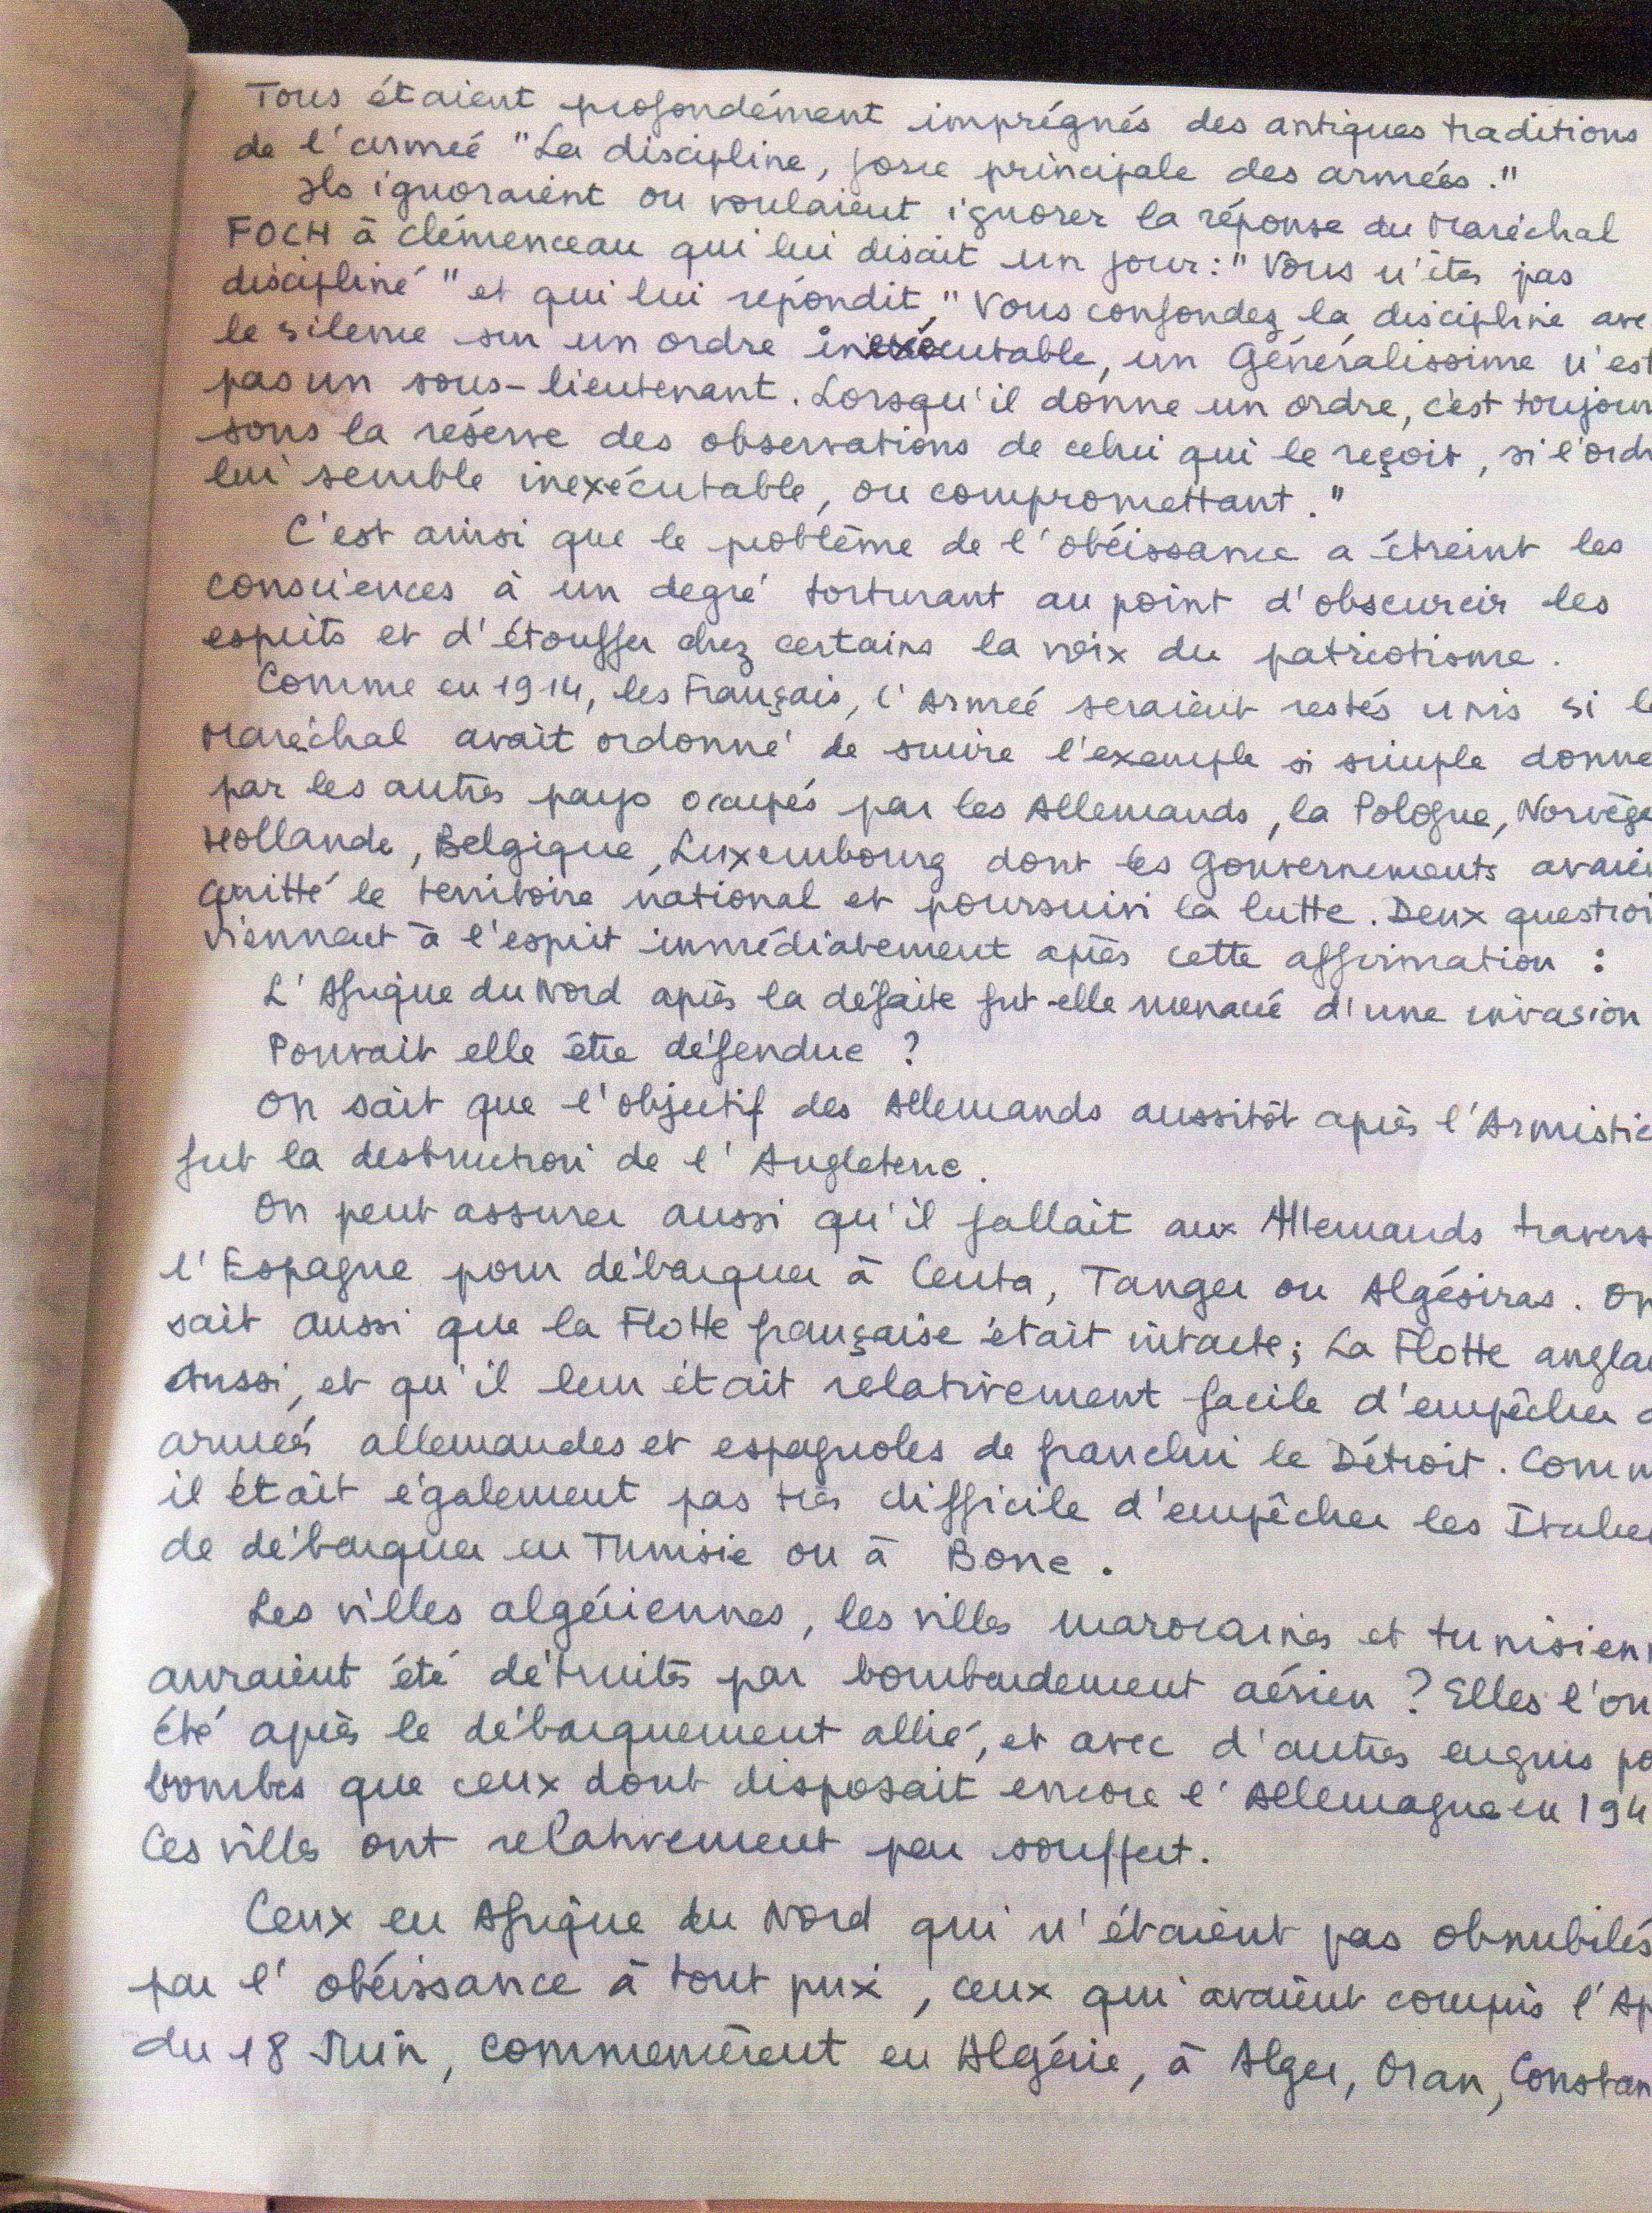 Tous étaient profondément imprégnés des antiques traditions
de l'armée "La discipline, force principale des armées."
Ils ignoraient ou voulaient ignorer la réponse du Maréchal
FOCH à Clémenceau qui lui disait un jour: "Vous n'êtes pas
discipliné" et qui lui répondit, "Vous confondez la discipline ave
le silence sur un ordre inexécutable, un Généralissime n'est
pas un sous-lieutenant. Lorsqu'il donne un ordre, c'est toujour
sous la réserve des observations de celui qui le reçoit, si l'ordr
lui semble inexécutable, ou compromettant."
C'est ainsi que le problème de l'obéissance a étreint les
consciences à un degré torturant au point d'obscurcir les
esprits et d'étouffer chez certains la voix du patriotisme.
Comme en 1914, les Français, l'Armée seraient restés unis si le
Maréchal avait ordonné de suivre l'exemple si simple donné
par les autres pays occupés par les Allemands, la Pologne, Norvège
Hollande, Belgique, Luxembourg dont les Gouvernements avaien
quitté le territoire national et poursuivi la lutte. Deux question
viennent à l'esprit immédiatement après cette affirmation :
L'Afrique du Nord après la défaite fut-elle menacée d'une invasion
Pouvait elle être défendue ?
On sait que l'objectif des Allemands aussitôt après l'Armistic
fut la destruction de l'Angleterre.
On peut assurer aussi qu'il fallait aux Allemands travers
l'Espagne pour débarquer à Ceuta, Tanger ou Algésiras. On
sait aussi que la Flotte française était intacte; La Flotte anglai
Aussi, et qu'il leur était relativement facile d'empêcher d
armées allemandes et espagnoles de franchir le Détroit. Comm
il était également pas très difficile d'empêcher les Italien
de débarquer en Tunisie ou à Bone.
Les villes algériennes, les villes marocaines et tunisienn
auraient été détruites par bombardement aérien ? Elles l'on
été après le débarquement allié, et avec d'autres engins po
bombes que ceux dont disposait encore l'Allemagne en 194
Ces villes ont relativement peu souffert.
Ceux en Afrique du Nord qui n'étaient pas obnubilés
par l'obéissance à tout prix, ceux qui avaient compris l'Ap
du 18 Juin, commencèrent en Algérie, à Alger, Oran, Constan